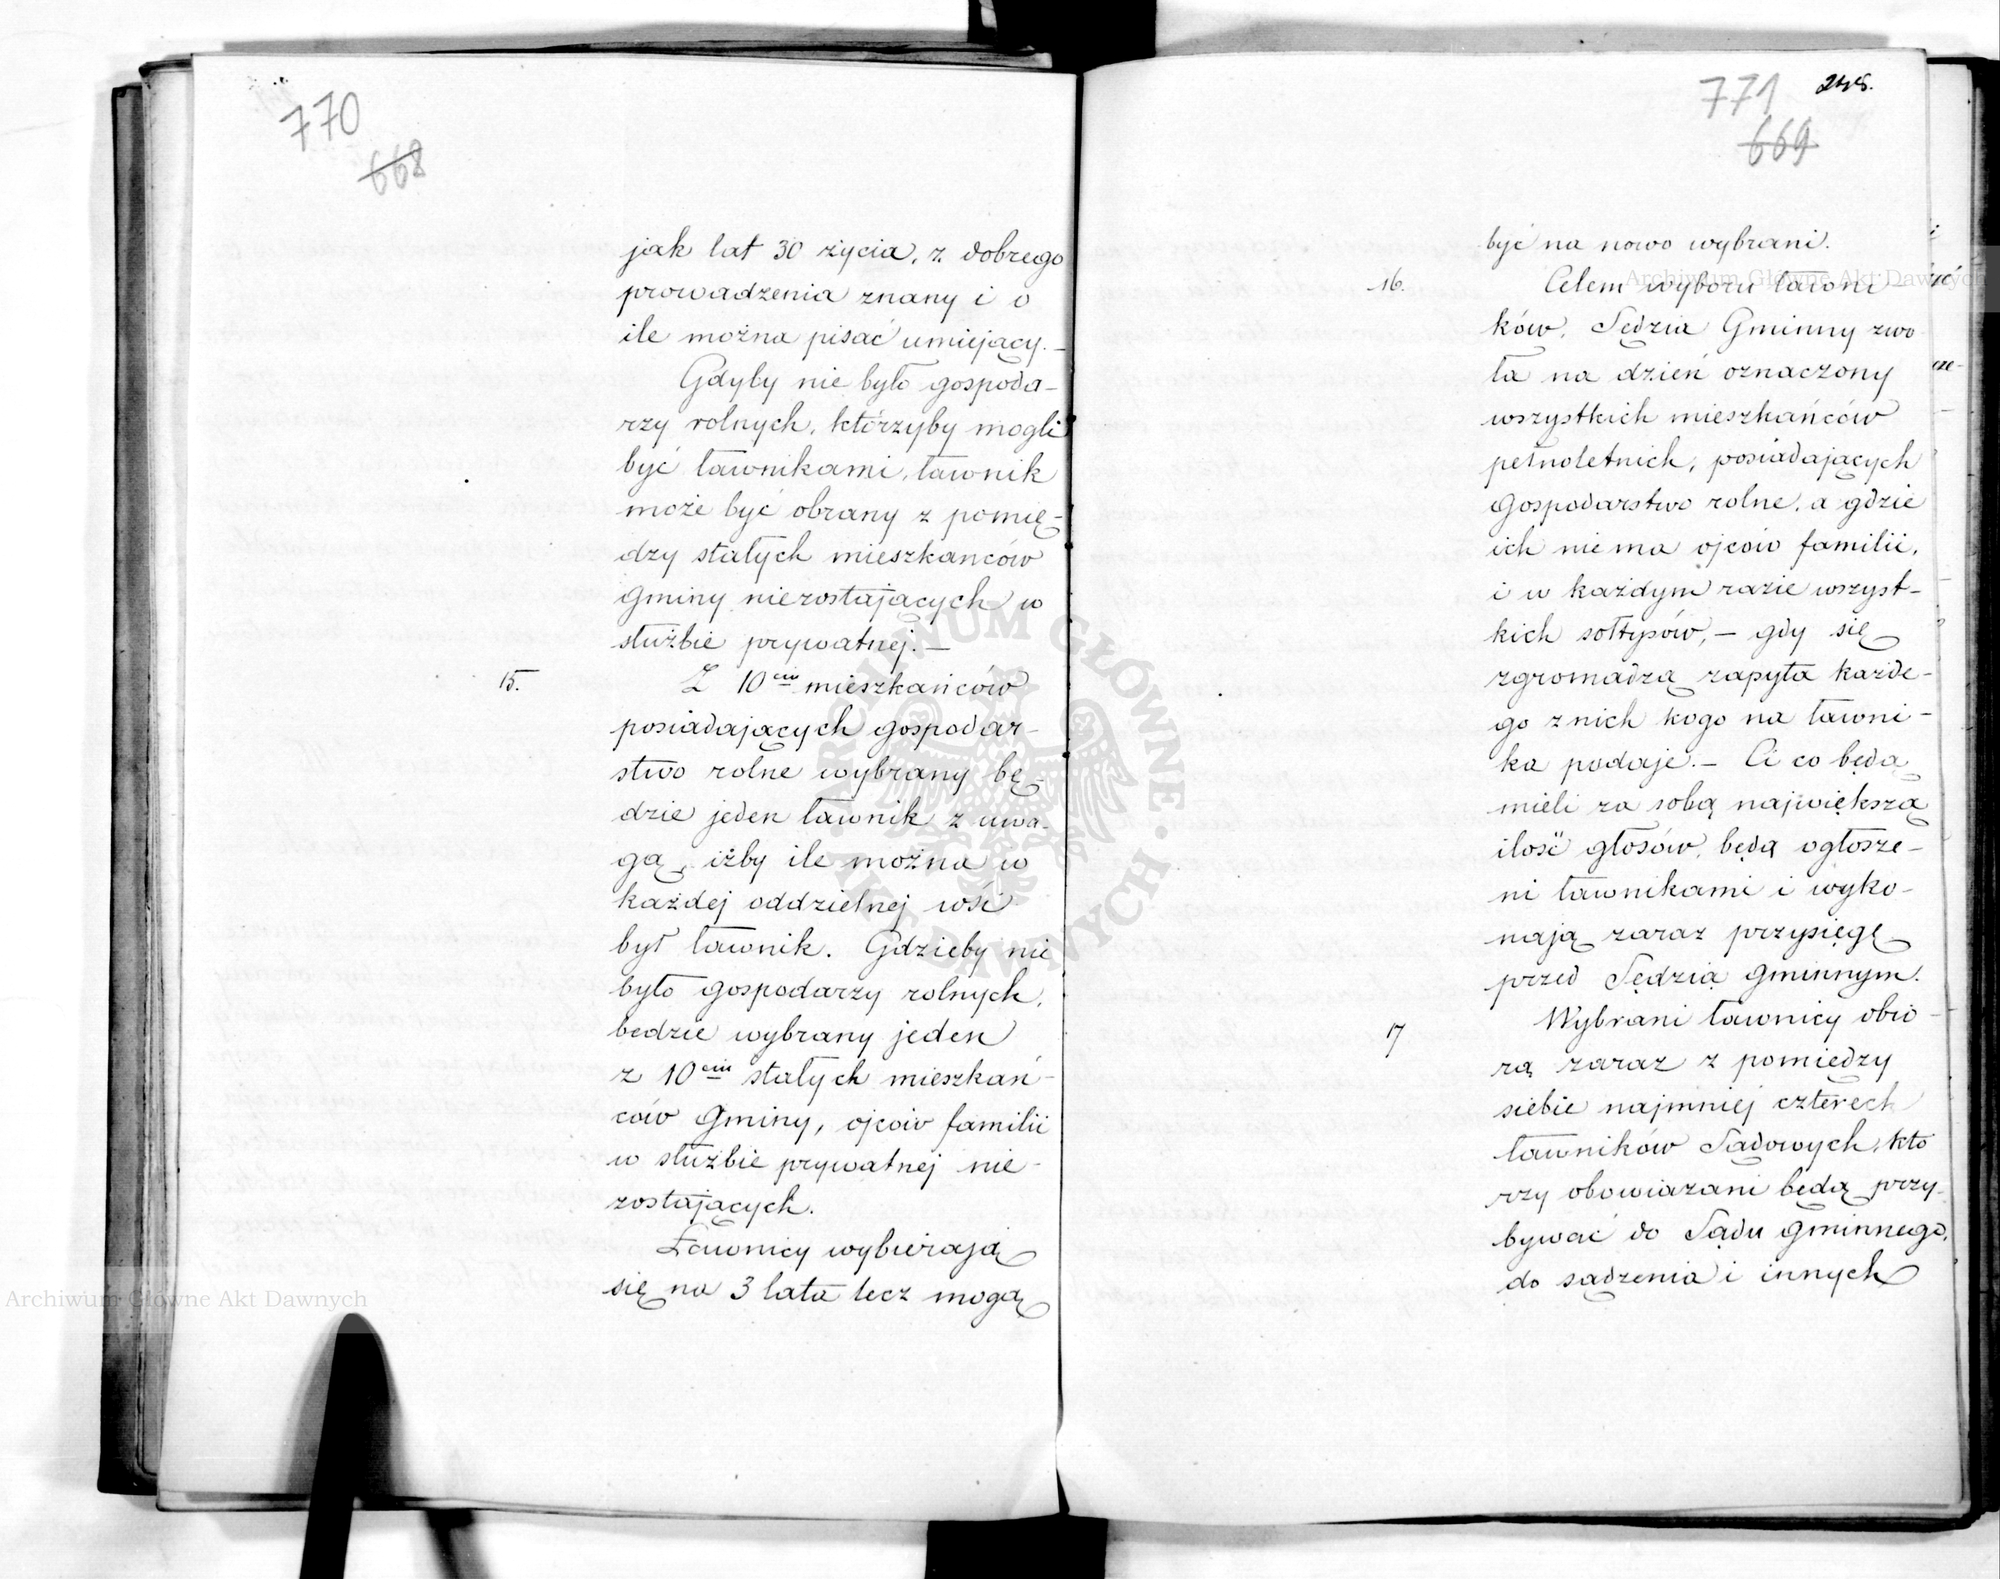 770
668
jak lat 30 życia, z dobrego
prowadzenia znany i o
ile można pisać umiejący. –
Gdyby nie było gospoda-
rzy rolnych, którzyby mogli
być ławnikami, ławnik
może być obrany z pomię-
dzy stałych mieszkańców
Gminy niezostających w
służbie prywatnej. –
15.
Z 10ciu mieszkańców
posiadających gospodar-
stwo rolne wybrany bę-
dzie jeden ławnik z uwa-
gą, iżby ile można w
każdej oddzielnej wsi
był ławnik. Gdzieby nie
było gospodarzy rolnych,
bedzie wybrany jeden
z 10ciu stałych mieszkań-
ców Gminy, ojców familii
w służbie prywatnej nie-
zostających.
Ławnicy wybierają
się na 3 lata lecz mogą
771
669
być na nowo wybrani.
16.
Celem wyboru ławni-
ków, Sędzia Gminny zwo
ła na dzień oznaczony
wszystkich mieszkańców
pełnoletnich, posiadających
Gospodarstwo rolne, a gdzie
ich niema ojców familii,
i w każdym razie wszyst-
kich sołtysów, – gdy się
zgromadzą zapyta każde-
go z nich kogo na ławni-
ka podaje. – Ci co będą
mieli za sobą największą
ilość głosów, będą ogłosze-
ni ławnikami i wyko-
nają zaraz przysięgę
przed Sędzią Gminnym.
17
Wybrani ławnicy obio-
rą zaraz z pomiędzy
siebie najmniej czterech
ławników Sądowych, któ
rzy obowiązani będą przy-
bywać do Sądu Gminnego,
do sądzenia i innych
Archiwum Główne Akt Dawnych
Archiwum Główne Akt Dawnych
ARCHIWUM GŁÓWNE AKT DAWNYCH